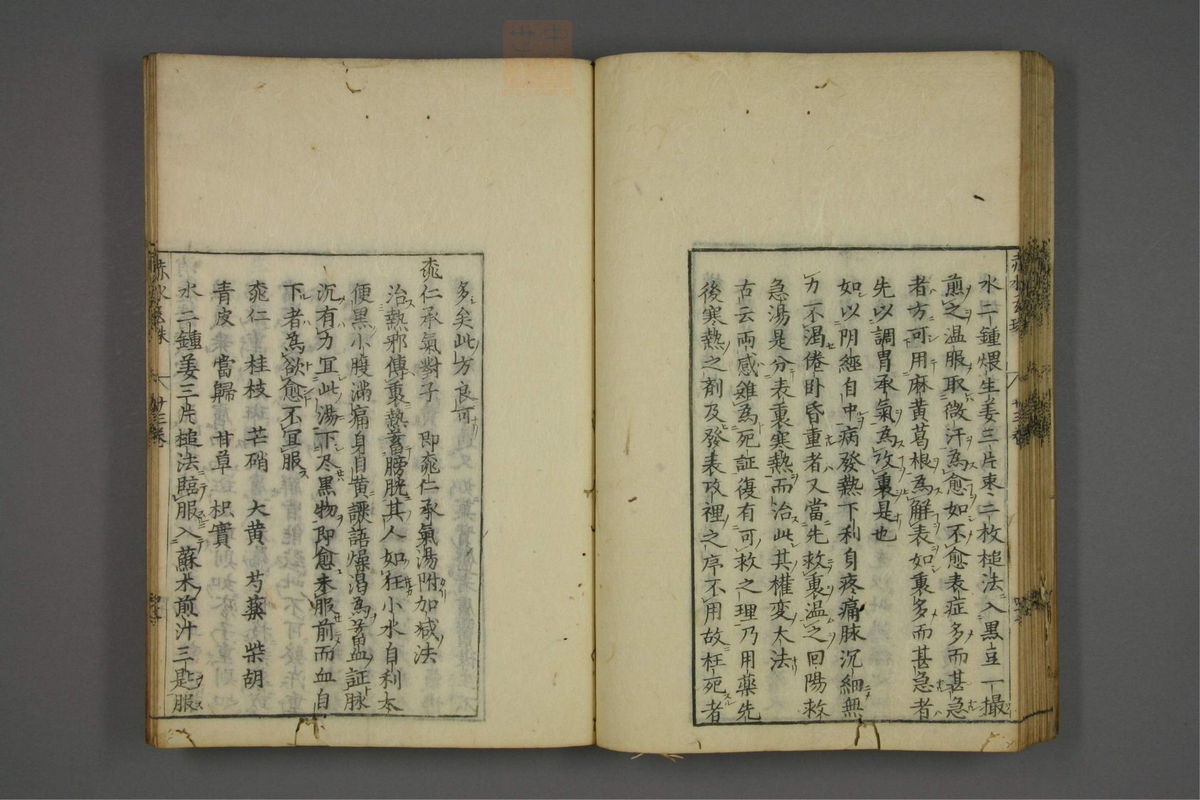 水二鍾煨生姜三片束二枚槌法入黒豆一撮
煎之温服取微汗為愈如不愈表症多而甚急
者方可用麻黄葛根為解表如裏多而甚急者
先以調胃承氣為攻裏是也
如以阴經自中病發熱下利自疼痛脉沉細無
力不渴倦卧昏重者又當先救裏温之回陽救
急湯是分表裏寒熱而治此其權变大法
古云两感雖為死証復有可救之理乃用藥先
後寒熱之剤及發表攻裡之序不用故枉死者
多矣此方良可
桃仁承氣對子 即桃仁承氣湯附加减法
治熱邪傳裏熱蓄膀胱其人如狂小水自利大
便黒小腹滿痛身自黄譫語燥渴為蓄血証脉
沉有力宜此湯下尽黒物即愈未服前而血自
下者為欲愈不宜服
桃仁 桂枝 芒硝 大黄 芍藥 柴胡
青皮 當歸 甘草 枳實
水二鍾姜三片槌法臨服入蘇木煎汁三匙服